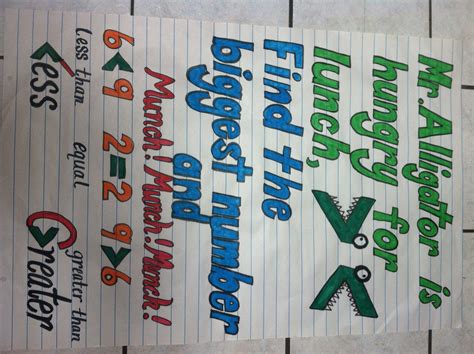 Mr. Alligator is
hungry for
lunch,
Find the
biggest number
and
Munch! Munch! Munch!
6<9 2=2 9>6
less than equal greater than
Less Greater